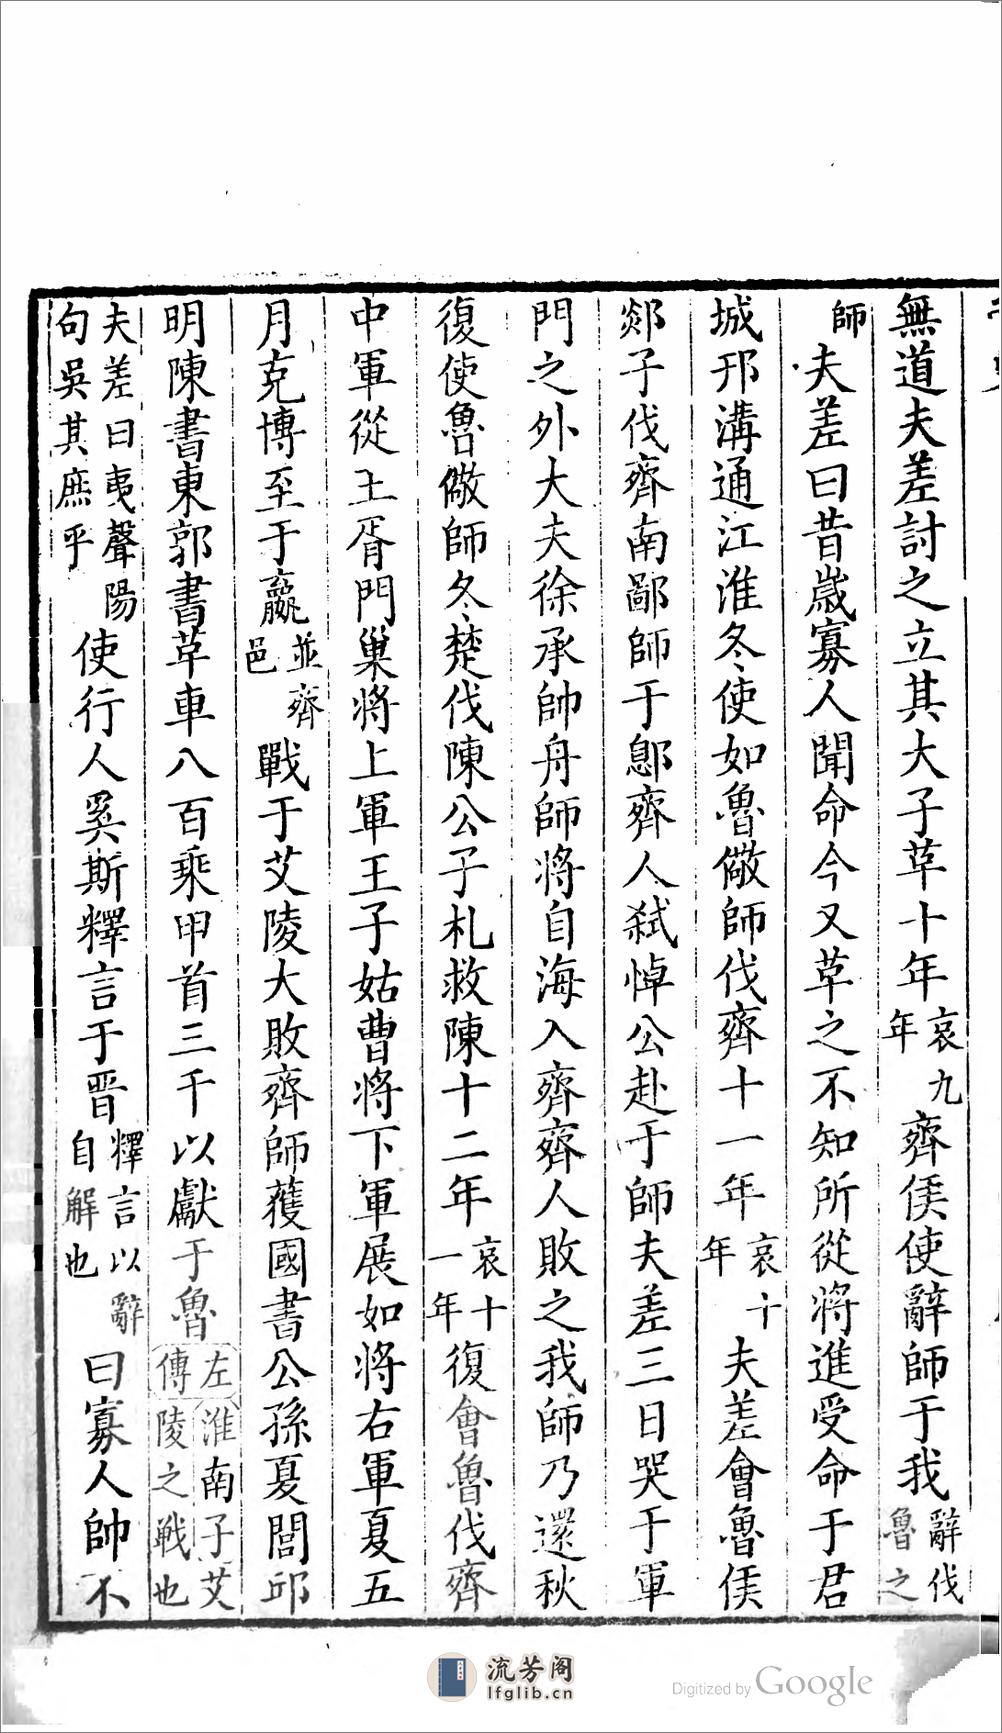 無道夫差討之立其大子革十年哀九年齊侯使辭師于我辭伐魯之
師夫差曰昔歲寡人聞命今又革之不知所從將進受命于君
城邗溝通江淮冬使如魯儆師伐齊十一年哀十年夫差會魯侯
郯子伐齊南鄙師于鄎齊人弒悼公赴于師夫差三日哭于軍
門之外大夫徐承帥舟師將自海入齊齊人敗之我師乃還秋
復使魯儆師冬楚伐陳公子札救陳十二年哀十一年復會魯伐齊
中軍從王胥門巢將上軍王子姑曹將下軍展如將右軍夏五
月克博至于嬴並齊邑戰于艾陵大敗齊師獲國書公孫夏閭邱
明陳書東郭書革車八百乘甲首三千以獻于魯左傳淮南子艾陵之戰也
夫差曰夷聲陽句吳其庶乎使行人奚斯釋言于晋釋言以辭自解也曰寡人帥不
流芳阁
lfglib.cn
Digitized by Google